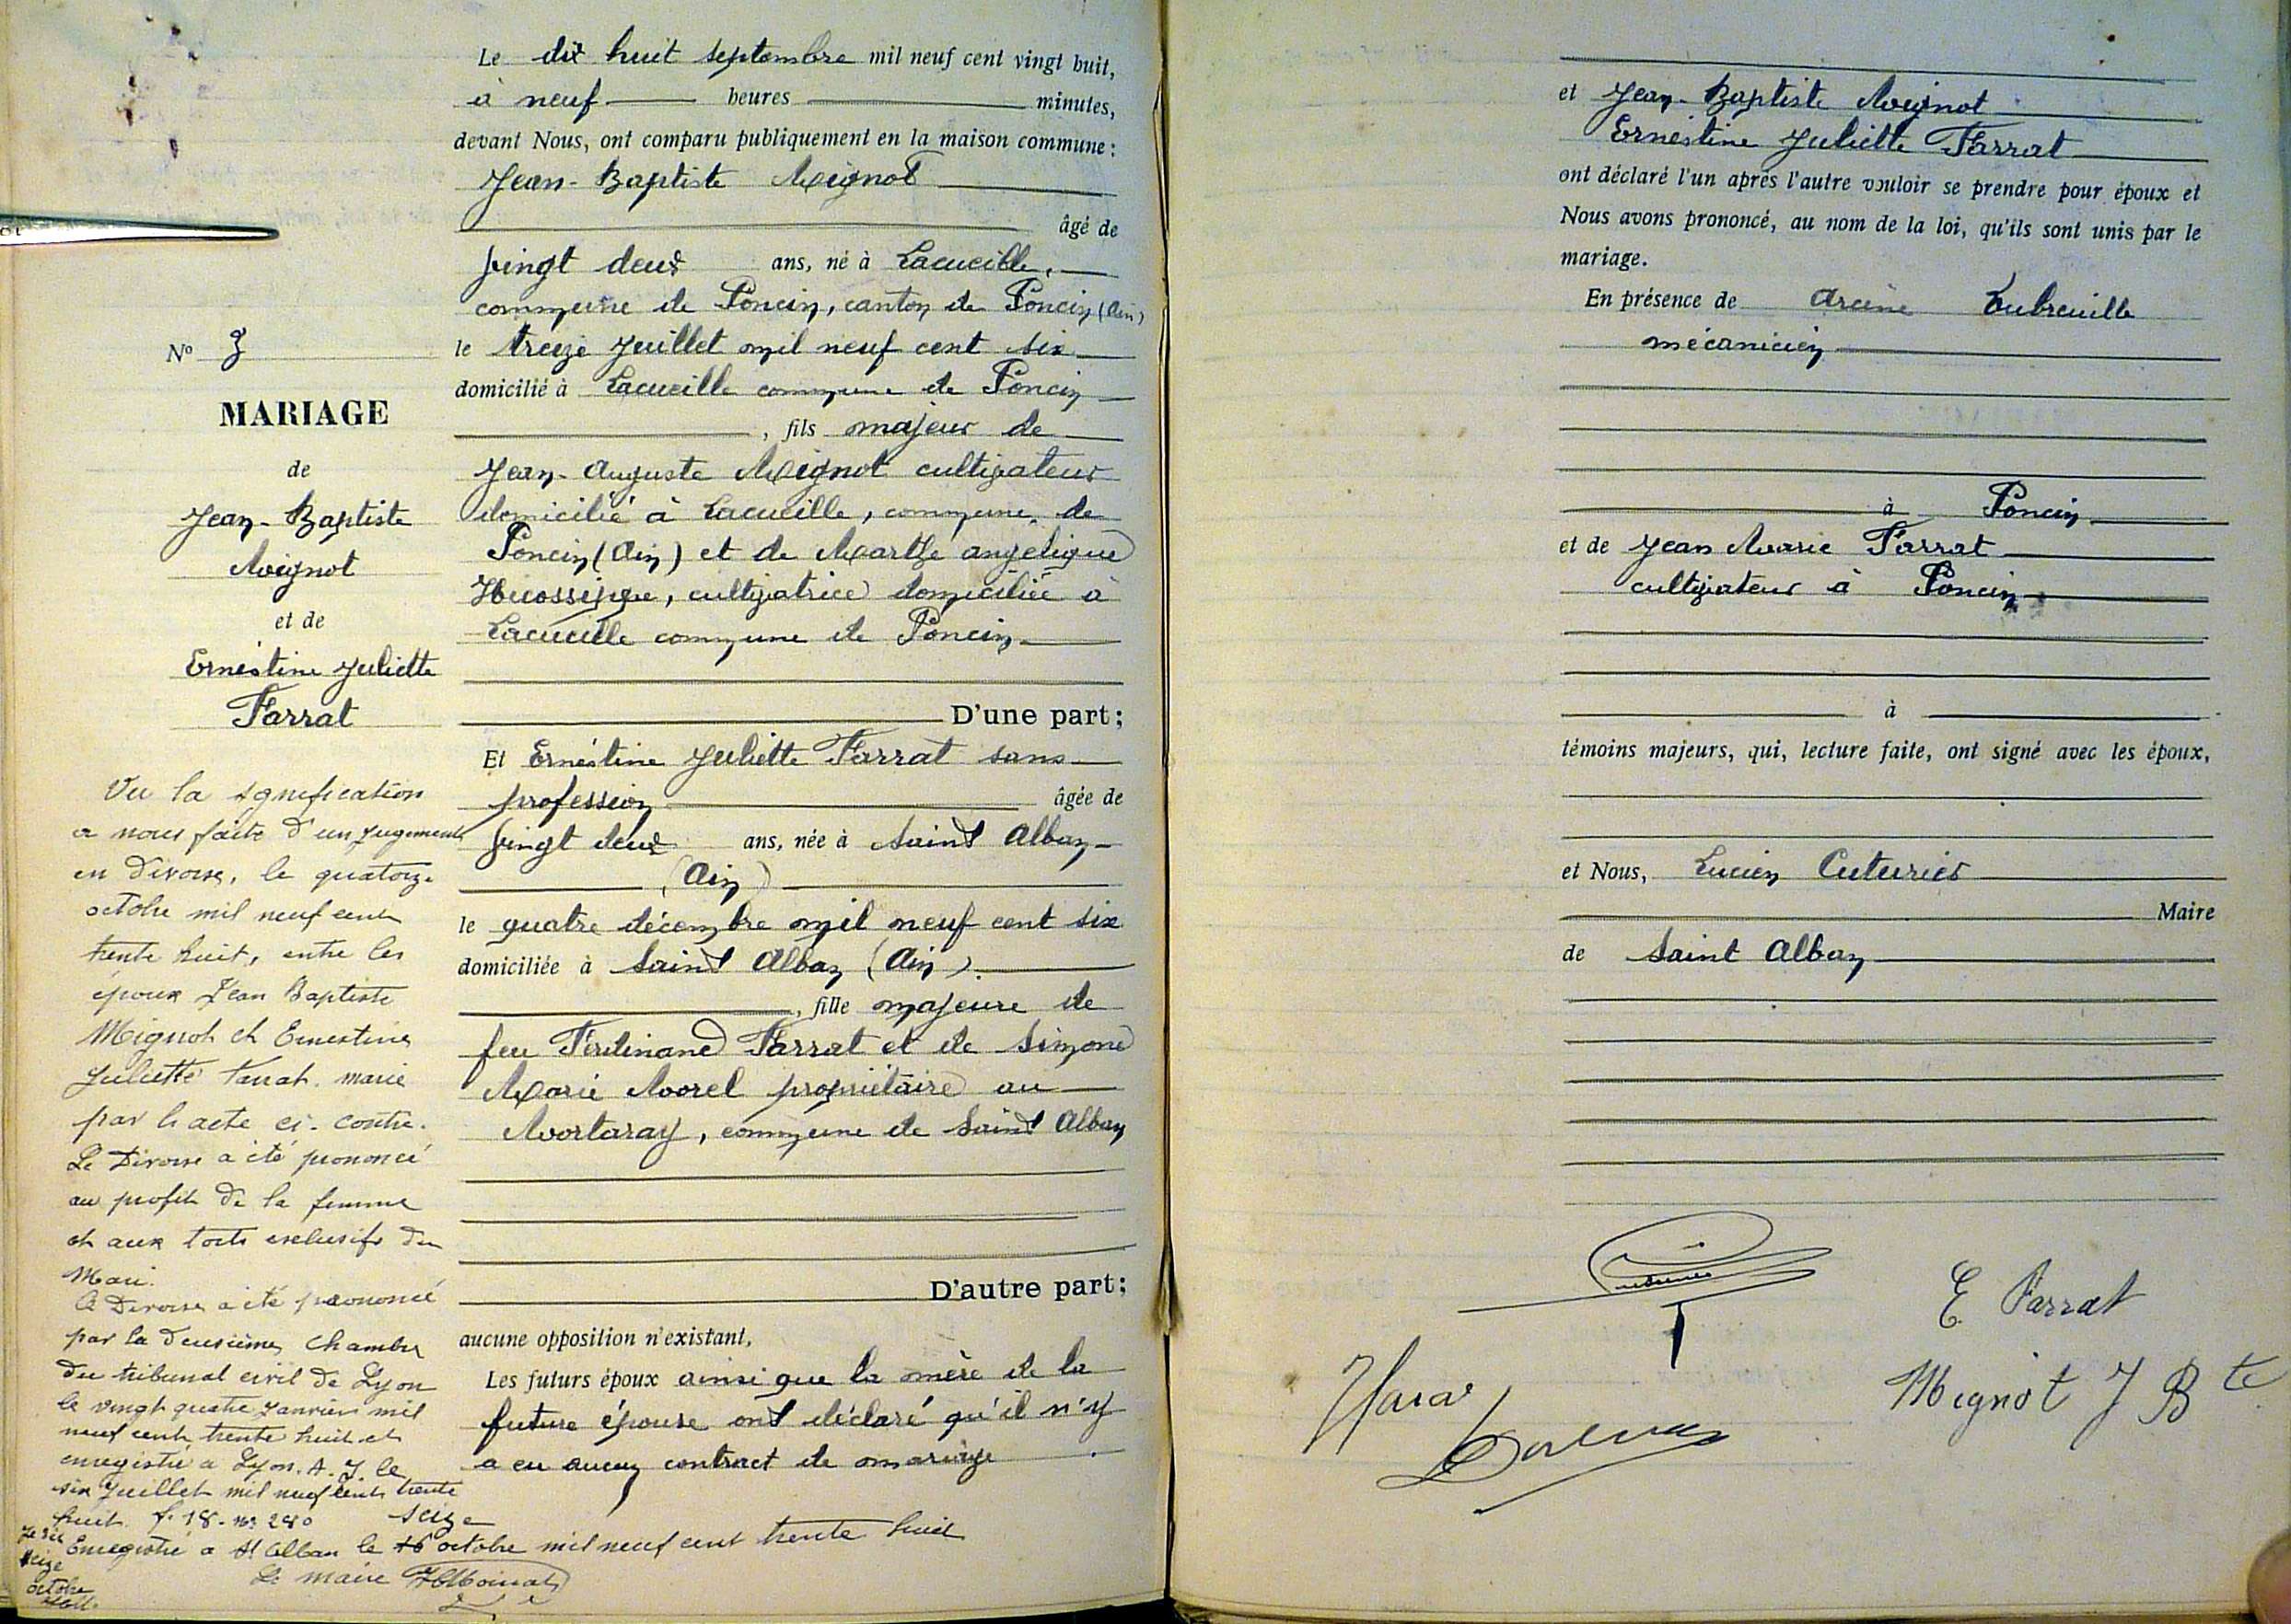 Le dix huit septembre mil neuf cent vingt huit,
à neuf heures minutes,
devant Nous, ont comparu publiquement en la maison commune :
Jean-Baptiste Mignot
âgé de
vingt deux ans, né à Lacueille,
commune de Poncin, canton de Poncin (Ain)
le treize Juillet mil neuf cent six
domicilié à Lacueille commune de Poncin
, fils majeur de
Jean-Auguste Mignot cultivateur
domicilié à Lacueille, commune de
Poncin (Ain) et de Marthe angelique
cultivatrice domiciliée à
Lacueille commune de Poncin
D'une part ;
Et Ernéstine Juliette Farrat sans
profession âgée de
vingt deux ans, née à Saint Alban
(Ain)
le quatre décembre mil neuf cent six
domiciliée à Saint Alban (Ain).
, fille majeure de
feu Ferdinand Farrat et de Simone
Marie Morel propriétaire au
Mortaray, commune de Saint Alban
D'autre part ;
aucune opposition n'existant,
Les futurs époux ainsi que la mère de la
future épouse ont déclaré qu'il n'y
a eu aucun contract de mariage
No 3
MARIAGE
de
Jean-Baptiste
Mignot
et de
Ernéstine Juliette
Farrat
Vu la signification
a nous faite d'un jugement
en Divorce, le quatorze
octobre mil neuf cent
trente huit, entre les
époux Jean Baptiste
Mignot et Ernestine
Juliette Farrat. marié
par l'acte ci-contre.
Le Divorce a été prononcé
au profit de la femme
et aux torts exclusifs du
Mari.
Le Divorce a été prononcé
par la deuxième Chambre
du tribunal civil de Lyon
le vingt quatre Janvier mil
neuf cent trente huit et
enregistré à Lyon. A. J. le
six Juillet mil neuf cent trente
huit. f. 18 - no 280 seize
Enregistré a St Alban le 16 octobre mil neuf cent trente huit
Le maire
seize
octobre
et Jean-Baptiste Mignot
Ernéstine Juliette Farrat
ont déclaré l'un après l'autre vouloir se prendre pour époux et
Nous avons prononcé, au nom de la loi, qu'ils sont unis par le
mariage.
En présence de Arcène Lubreuille
mécanicien
à Poncin
et de Jean Marie Farrat
cultivateur à Poncin
à
témoins majeurs, qui, lecture faite, ont signé avec les époux,
et Nous, Lucien Cuturier
Maire
de Saint Alban
E. Farrat
Mignot J Bte